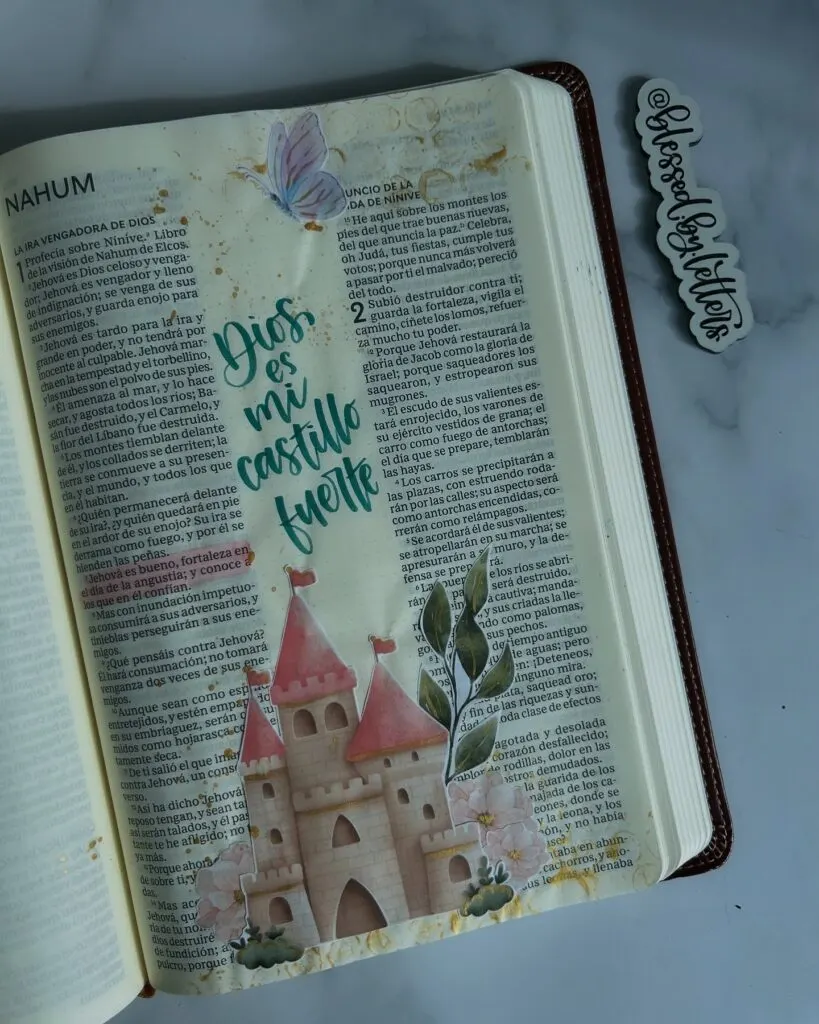 NAHUM
LA IRA VENGADORA DE DIOS
1 Profecía sobre Nínive. Libro
de la visión de Nahum de Elcos.
Jehová es Dios celoso y venga-
dor; Jehová es vengador y lleno
de indignación; se venga de sus
adversarios, y guarda enojo para
sus enemigos.
Jehová es tardo para la ira y
grande en poder, y no tendrá por
inocente al culpable. Jehová mar-
cha en la tempestad y el torbellino,
y las nubes son el polvo de sus pies.
El amenaza al mar, y lo hace
secar, y agosta todos los ríos; Ba-
sán fue destruido, y el Carmelo, y
la flor del Líbano fue destruida.
Los montes tiemblan delante
de él, y los collados se derriten; la
tierra se conmueve a su presen-
cia, y el mundo, y todos los que
en él habitan.
¿Quién permanecerá delante
de su ira?, ¿y quién quedará en pie
en el ardor de su enojo? Su ira se
derrama como fuego, y por él se
hienden las peñas.
Jehová es bueno, fortaleza en
el día de la angustia; y conoce a
los que en él confían.
Mas con inundación impetuo-
sa consumirá a sus adversarios, y
tinieblas perseguirán a sus ene-
migos.
¿Qué pensáis contra Jehová?
Él hará consumación; no tomará
venganza dos veces de sus ene-
migos.
Aunque sean como
entretejidos, y estén
en su embriaguez, serán
midos como hojarasca
tamente seca.
De ti salió el que
contra Jehová, un
verso.
Así ha dicho Jehová:
reposo tengan, y sean
así serán talados, y él
te he afligido; no
ya más.
Porque ahora
de sobre ti, y
das.
Mas
Jehová,
ria de tu
dios destruiré
de fundición;
pulcro, porque
Dios
es
mi
castillo
fuerte
UNCIO DE LA
DA DE NÍNIVE
15 He aquí sobre los montes los
pies del que trae buenas nuevas,
del que anuncia la paz. Celebra,
oh Judá, tus fiestas, cumple tus
votos; porque nunca más volverá
a pasar por ti el malvado; pereció
del todo.
2 Subió destruidor contra ti;
guarda la fortaleza, vigila el
camino, cíñete los lomos, refuer-
za mucho tu poder.
Porque Jehová restaurará la
gloria de Jacob como la gloria de
Israel; porque saqueadores los
saquearon, y estropearon sus
mugrones.
3 El escudo de sus valientes es-
tará enrojecido, los varones de
su ejército vestidos de grana; el
carro como fuego de antorchas;
el día que se prepare, temblarán
las hayas.
4 Los carros se precipitarán a
las plazas, con estruendo roda-
rán por las calles; su aspecto será
como antorchas encendidas, co-
rrerán como relámpagos.
5 Se acordará él de sus valientes;
se atropellarán en su marcha; se
apresurarán a muro, y la de-
fensa se
los ríos se abri-
rán será destruido.
cautiva; manda-
y sus criadas la lle-
como palomas,
sus pechos.
de tiempo antiguo
de aguas; pero
¡Deteneos,
ninguno mira.
plata, saquead oro;
fin de las riquezas y sun-
oda clase de efectos
agotada y desolada
corazón desfallecido;
de rodillas, dolor en las
demudados.
la guarida de los
de los ca-
donde se
la leona, y los
y no había
en abun-
cachorros, y
sus leonas, y llenaba
@blessed.by.letters